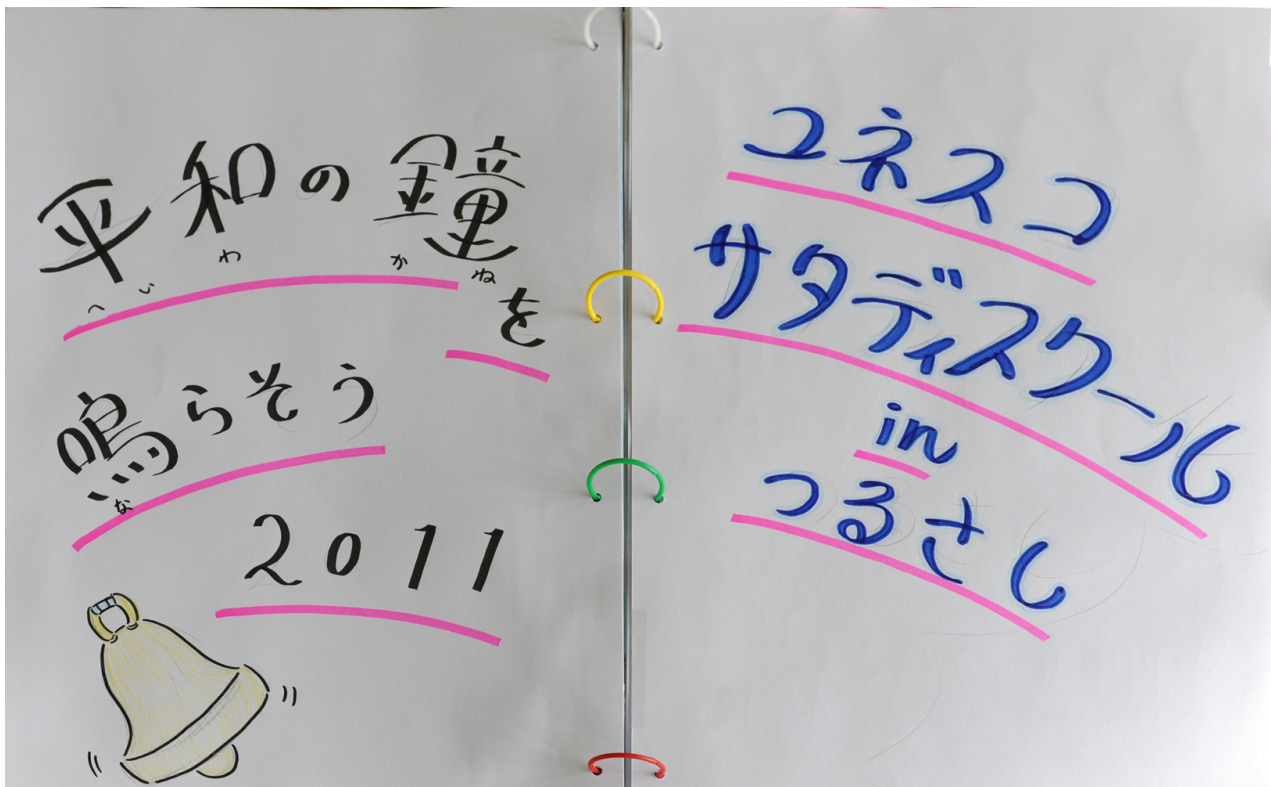 平和の鐘
へいわ かね
を
鳴らそう
な
2011
ユネスコ
サタディスクール
in
つるさし